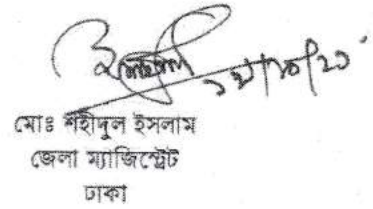 মোঃ শহীদুল ইসলাম
জেলা ম্যাজিস্ট্রেট
ঢাকা